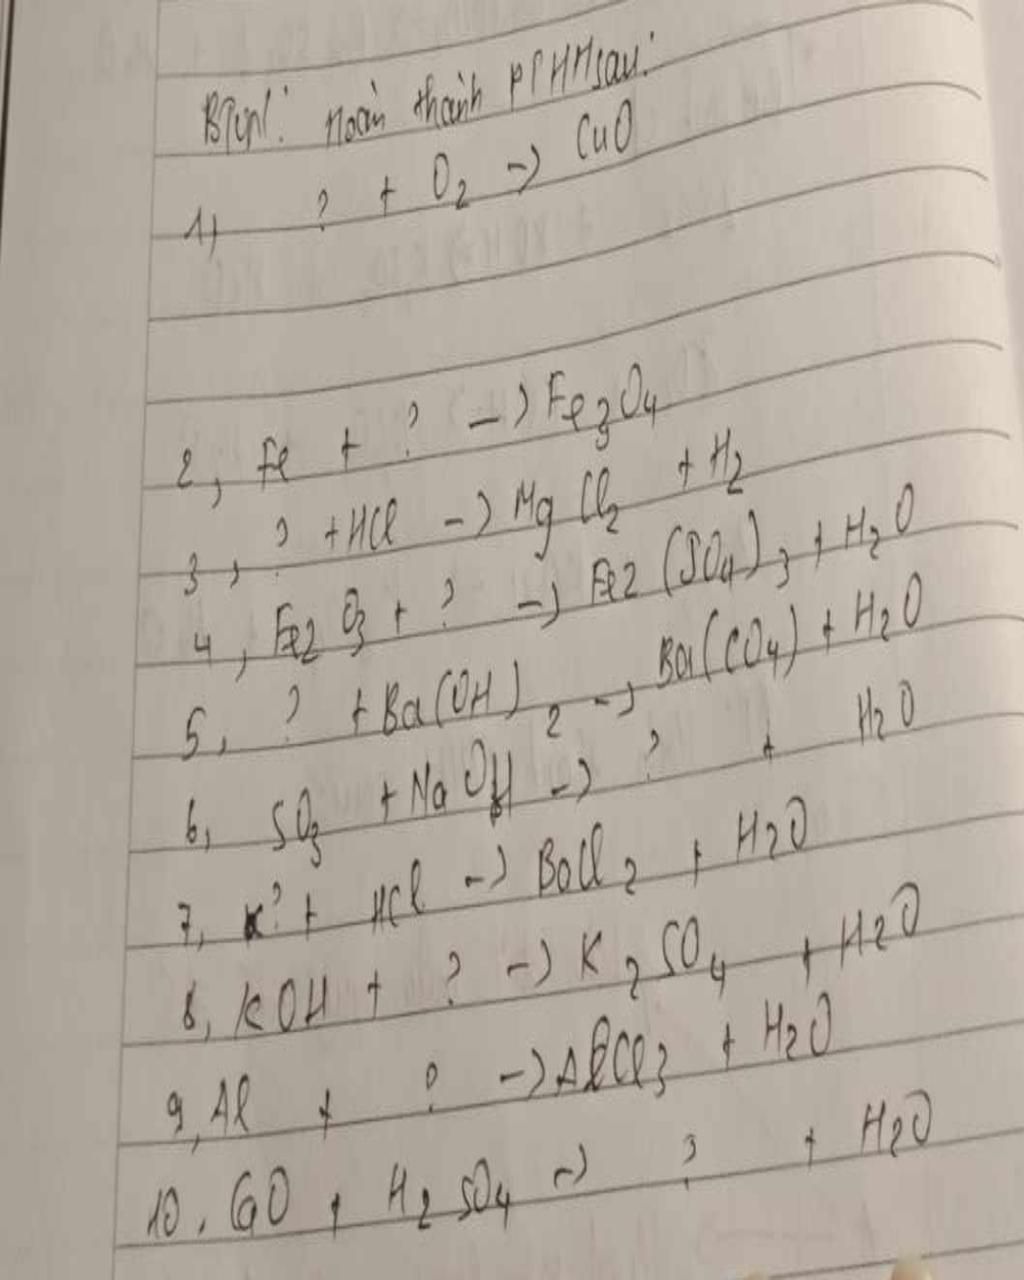 hoàn thành PTHH sau:
1, ? + O2 -> CuO
2, Fe + ? -> Fe3O4
3, ? + HCl -> MgCl2 + H2
4, Fe2O3 + ? -> Fe2(SO4)3 + H2O
5, ? + Ba(OH)2 -> Ba(CO4) + H2O
6, SO3 + NaOH -> ? + H2O
7, ? + HCl -> BaCl2 + H2O
8, KOH + ? -> K2SO4 + H2O
9, Al + ? -> AlCl3 + H2O
10. + H2SO4 -> ? + H2O